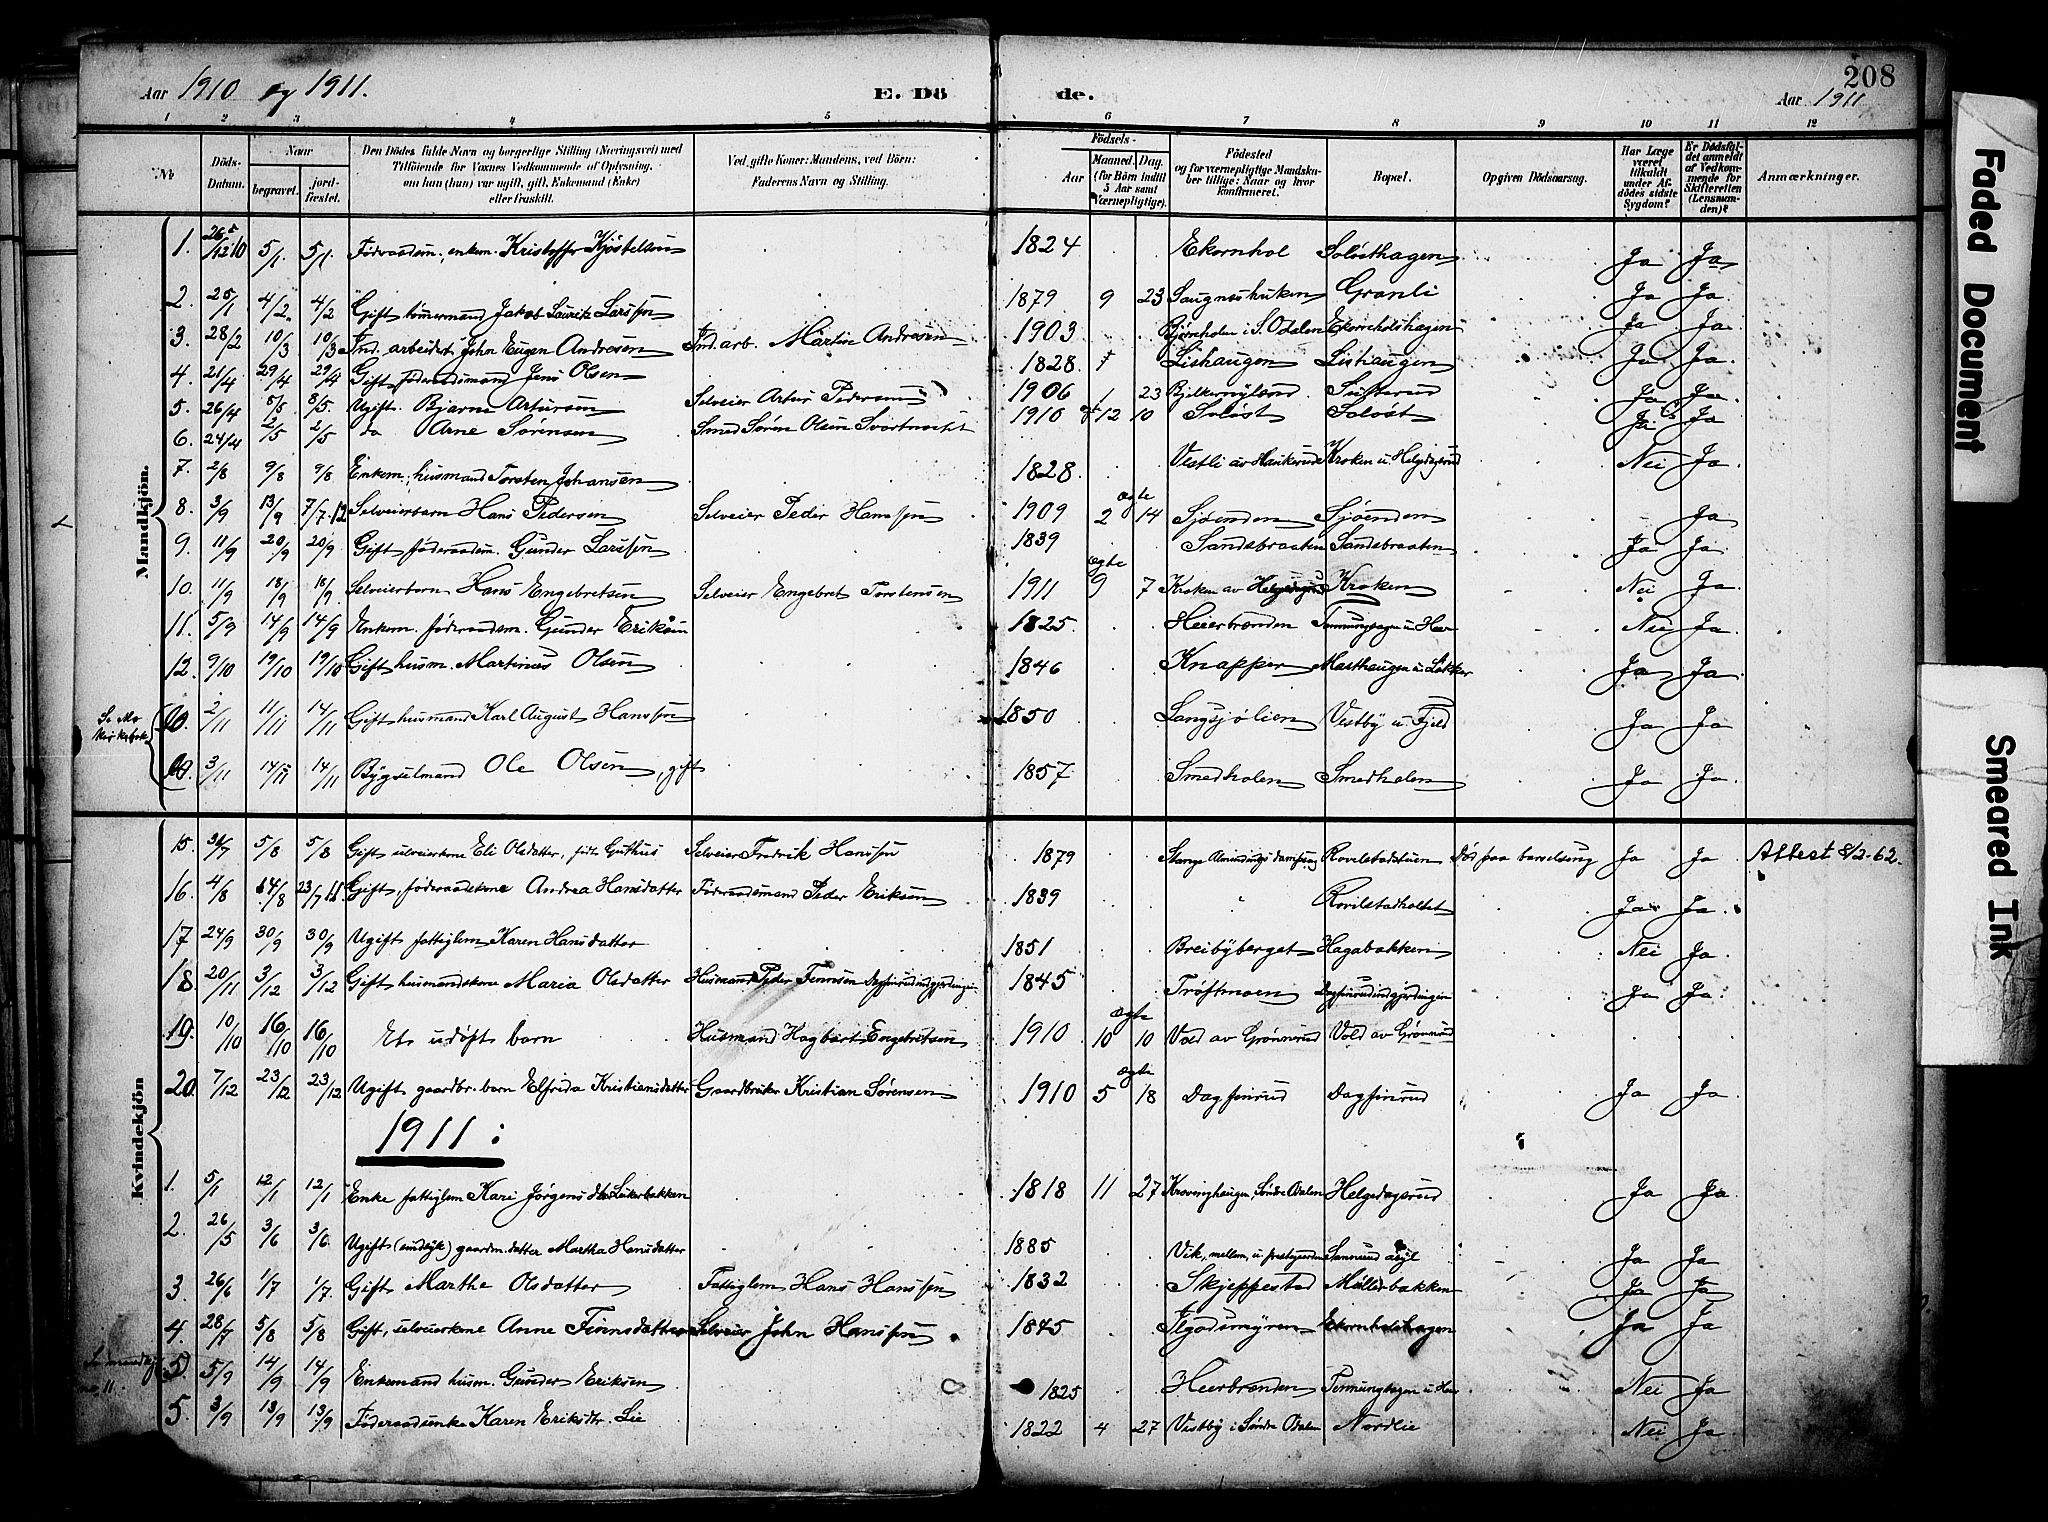 208
Aar 1910 og 1911. E. Dö de. Aar 1911
1 2 3 4 5 6 7 8 9 10 11 12
No
Döds-Datum.
Naar
begravet. jord-fæstet.
Den Dödes fulde Navn og borgerlige Stilling (Næringsvei) med
Tilföiende for Voxnes Vedkommende af Oplysning,
om han (hun) var ugift, gift, Enkemand (Enke)
eller fraskilt.
Ved gifte Koner: Mandens, ved Börn:
Faderens Navn og Stilling.
Födsels-
Aar Maaned. Dag.
(for Börn indtil
5 Aar samt
Værnepligtige).
Födested
og for værnepligtige Mandska-
ber tillige: Naar og hvor
konfirmeret.
Bopæl.
Opgiven Dödsaarsag.
Har Læge
været
tilkaldt
under Af-
dödes sidste
Sygdom?
Er Dödsfal-
det anmeldt
af Vedkom-
mende for
Skifteretten
(Lensman-
den)?
Anmærkninger.
Mandkjön.
1. 5/1 5/1 Föderaadsm., enkem. Kristoffer Kjöstelsen 1824 Ekornhol Solösthagen Ja Ja
2. 25/1 4/2 4/2 Gift tömmermand Jakob Lauritz Larssen 1879 9 23 Granli Ja Ja
3. 28/2 10/3 10/3 Ind. arbeider John Eugen Andresen Ind. arb. Martin Andresen 1903 Bjørneholen i S. Odalen Ekornholshagen Ja Ja
4. 21/4 29/4 29/4 Gift föderaadsmand Jens Olsen 1828 Lishaugen Lishaugen Ja Ja
5. 26/4 8/5 8/5 Ugift Bjarne Artursen Selveier Artur Pedersen 1906 1 23 Ja Ja
6. 24/4 2/5 2/5 do Arne Sørensen Smed Søren Olsen 1910 12 10 Soløst Soløst Ja Ja
7. 2/8 9/8 9/8 Enkem., husmand Torsten Johansen 1828 Vestli av Haukerud Kroken u. Helgedagsrud Nei Ja
8. 3/9 13/9 7/7-12 Selveierbarn Hans Pedersen Selveier Peder Hanssen 1909 ægte 2 14 Sjøenden Sjøenden Ja
9. 11/9 20/9 20/9 Gift föderaadsm. Gunder Larssen 1839 Sandsbraaten Sandsbraaten Ja Ja
10. 11/9 18/9 18/9 Selveierbarn Hans Engebretsen Selveier Engebret Torstensen 1911 ægte 9 7 Kroken av Helgedagsrud Kroken Nei Ja
11. 5/9 14/9 14/9 Enkem. föderaadsm. Gunder Eriksen 1825 Heierbrænden Nei Ja
12. 9/10 19/10 19/10 Gift husm. Martinus Olsen 1846 Knapper Ja Ja
2/11 11/11 14/11 Gift husmand Karl August Hanssen 1850 Langsjølien Vestby u. Fjeld Ja Ja
3/11 14/11 14/11 Bygselmand Ole Olsen, gift 1857 Smedholen Smedholen Ja Ja
Kvindekjön
15. 5/8 5/8 Gift selveierkone Eli Olsdatter, født Guthus Selveier Fredrik Hanssen 1879 Rovilstadstuen Død paa barselseng Ja Ja Attest 8/2-62.
16. 4/8 14/8 23/7 11. Gift, föderaadskone Andrea Hansdatter Föderaadsmand Peder Eriksen 1839 Rovilstadholtet Ja Ja
17 24/9 30/9 30/9 Ugift fattiglem Karen Hansdatter 1851 Breibyberget Hagabakken Nei Ja
18. 20/11 3/12 3/12 Gift husmandskone Maria Olsdatter Husmand Peder Finnsen 1845 Trøftmoen Ja Ja
19. 10/10 16/10 16/10 Et udøft barn Husmand Hagbart Engebretsen 1910 ægte 10 10 Vold av Grønnrud Vold av Grønnrud
20. 7/12 23/12 23/12 Ugift gaardbr. barn Elfrida Kristiansdatter Gaardbruker Kristian Sørensen 1910 ægte 5 18 Dagfinrud Dagfinrud Ja Ja
1911:
1. 5/1 12/1 12/1 Enke fattiglem Kari Jørgensdtr. 1818 11 27 Søndre Odalen Helgedagsrud Ja Ja
2. 26/5 3/6 3/6 Ugift (sindsyk) gaardm.datter Martha Hansdatter 1885 Vik, mellem, u. prestegaarden Sannerud asyl Ja Ja
3 26/6 1/7 1/7. Gift Marthe Olsdatter Fattiglem Hans Hanssen 1832 Skjeppestad Möllerbakken Ja Ja
4. 28/7 5/8 5/8 Gift, selveierkone Anne Finnsdatter Selveier John Hanssen 1845 Ekornholshagen Ja Ja
5) 5/9 14/9 14/9 Enkemand husm. Gunder Eriksen 1825 Heerbrænden Nei Ja
5. 3/9 13/9 13/9 Föderaadsenke Karen Eriksdtr. Lie 1822 4 27 Vestby i Søndre Odalen Nordlie Nei Ja
Faded Document
Smeared Ink